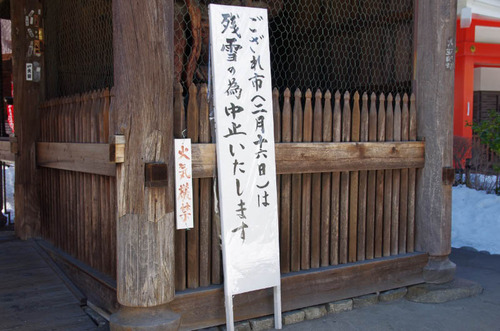 ござれ市(二月十六日)は
残雪の為中止いたします
火気厳禁